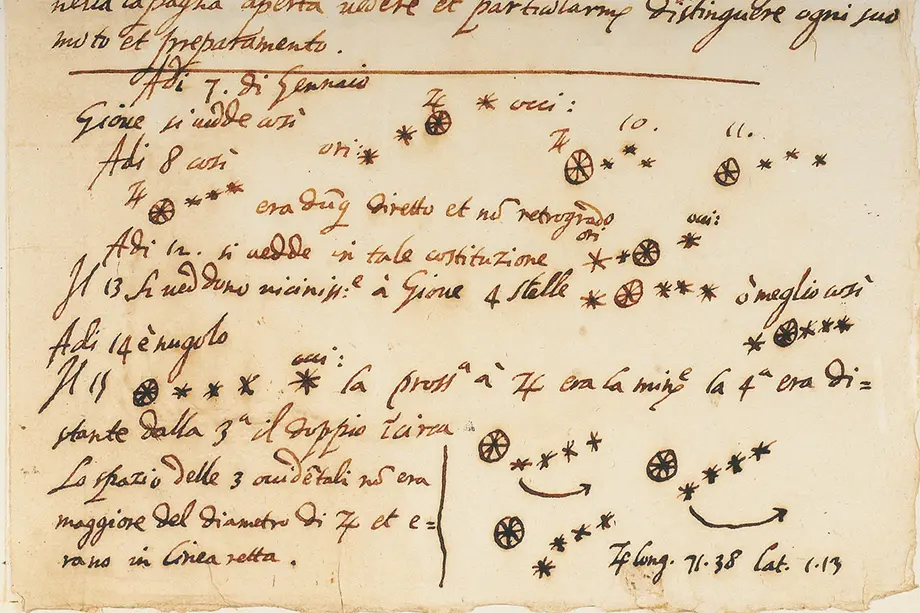 nella capagna aperta vedere et particularmẽ distinguere ogni suo
moto et preparamento.
Adi 7. di Gennaio
Giove si vedde così
♃ occi:
ori:
Adi 8 così
♃
♃ 10. 11.
era dũq diretto et nõ retrogrado
Adi 12. si vedde in tale costituzione
ori occi:
Il 13 si veddono viciniss:e à Giove 4 stelle
ò meglio così
Adi 14 è nugolo
Il 15
occi:
la prossa à ♃ era la mine la 4a era di=
stante dalla 3a il doppio ĩ circa
Lo spazio delle 3 occidẽtali nõ era
maggiore del diametro di ♃ et e=
rano in linea retta.
♃ long. 71.38 lat. 1.13